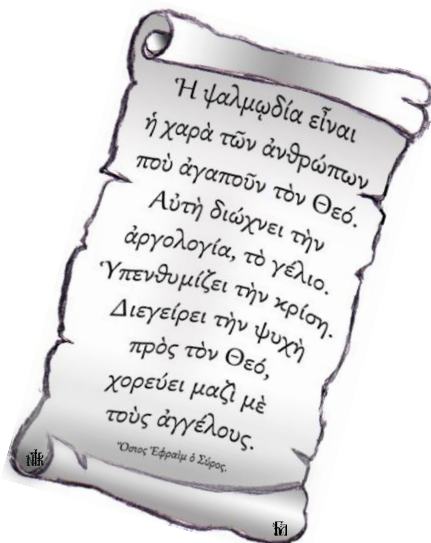 Ἡ ψαλμῳδία εἶναι
ἡ χαρὰ τῶν ἀνθρώπων
ποὺ ἀγαποῦν τὸν Θεό.
Αὐτὴ διώχνει τὴν
ἀργολογία, τὸ γέλιο.
Ὑπενθυμίζει τὴν κρίση.
Διεγείρει τὴν ψυχὴ
πρὸς τὸν Θεό,
χορεύει μαζὶ μὲ
τοὺς ἀγγέλους.
Ὅσιος Ἐφραὶμ ὁ Σύρος.